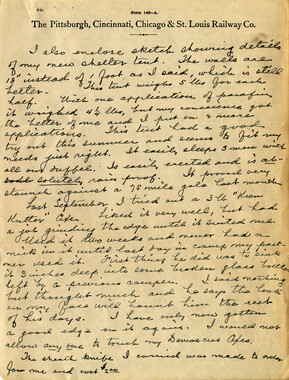 Form 148-A.
The Pittsburgh, Cincinnati, Chicago & St. Louis Railway Co.
I also enclose sketch showing details
of my new shelter tent. The walls are
18" instead of 1 foot as I said, which is still
better. This tent weighs 4 lbs for each
half. With one application of parafin
it weighed 4½ lbs, but my conscience got
the better of me and I put on 2 more
applications. This tent had a good
try out this summer and seems to fit my
needs just right. It easily sleeps 3 men with
all our duffel. Is easily erected and is ab-
solutely rain proof. It proved very
staunch against a 75 mile gale last month.
Last September I tried out a 3 lb "Keen
Kutter" Axe. Liked it very well, but had
a job grinding the edge until it suited me.
Used it two weeks and never had a
nick in it until last day in camp my part-
ner used it. First thing he did was to sink
it 3 inches deep into some broken glass bottle
left by a previous camper. I said nothing
but thought much and he says the look
on my face will haunt him the rest
of his days. I have only now gotten
a good edge on it again. I would not
allow any one to touch my Damascus Axe.
The sheath knife I carried was made to order
for me and cost $2.00